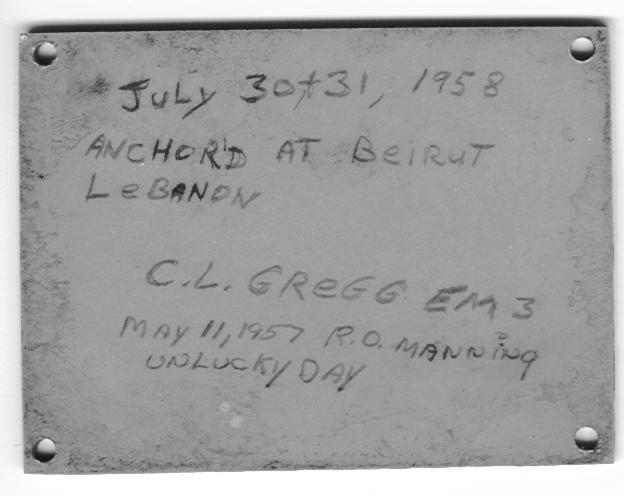 July 30,+31, 1958
ANCHOR'D AT BeiRUT
LeBANON
C.L. GReGG EM 3
MAY 11, 1957 R.O. MANNiNg
UNLUCKY DAY